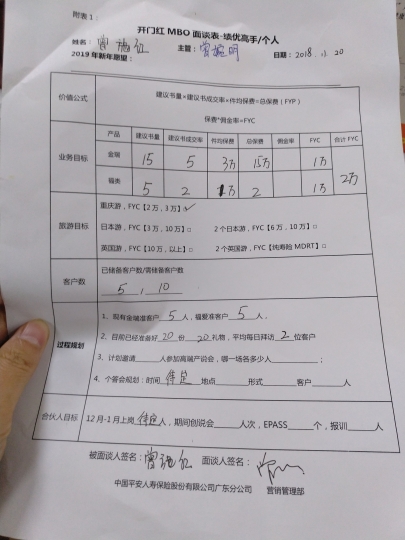 附表1：
开门红MBO面谈表-绩优高手/个人
姓名： 主管： 日期：2018.11.20
2019年新年愿望：
价值公式 建议书量×建议书成交率×件均保费=总保费（FYP）
保费*佣金率=FYC
业务目标 产品 建议书量 建议书成交率 件均保费 总保费 佣金率 FYC 合计FYC
金瑞 15 5 3万 15万 1万 2万
福类 5 2 1万 2 1万
旅游目标 重庆游，FYC【2万，3万】☑
日本游，FYC【3万，10万】□ 2个日本游，FYC【6万，10万】□
英国游，FYC【10万，以上】□ 2个英国游，FYC【纯寿险MDRT】□
客户数 已储备客户数/需储备客户数
5，10
过程规划 1、现有金瑞准客户5人，福类准客户5人。
2、目前已经准备好20份 20礼物，平均每日拜访2位客户
3、计划邀请____人参加高端产说会，哪一场各多少人____；
4、个答会规划：时间待定 地点____形式____客户____人
合伙人目标 12月-1月上岗待定人，期间创说会____人次，EPASS____个，报训____人
被面谈人签名： 面谈人签名：
中国平安人寿保险股份有限公司广东分公司 营销管理部